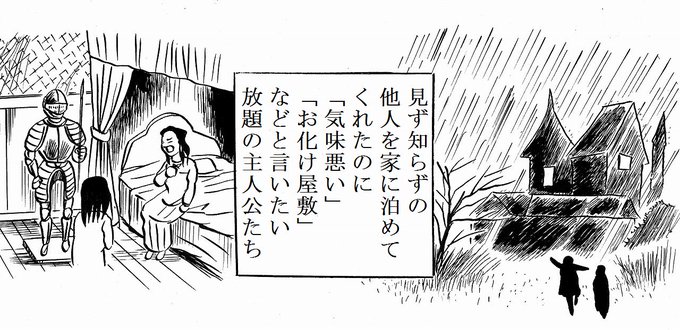 見ず知らずの
他人を家に泊めて
くれたのに
「気味悪い」
「お化け屋敷」
などと言いたい
放題の主人公たち